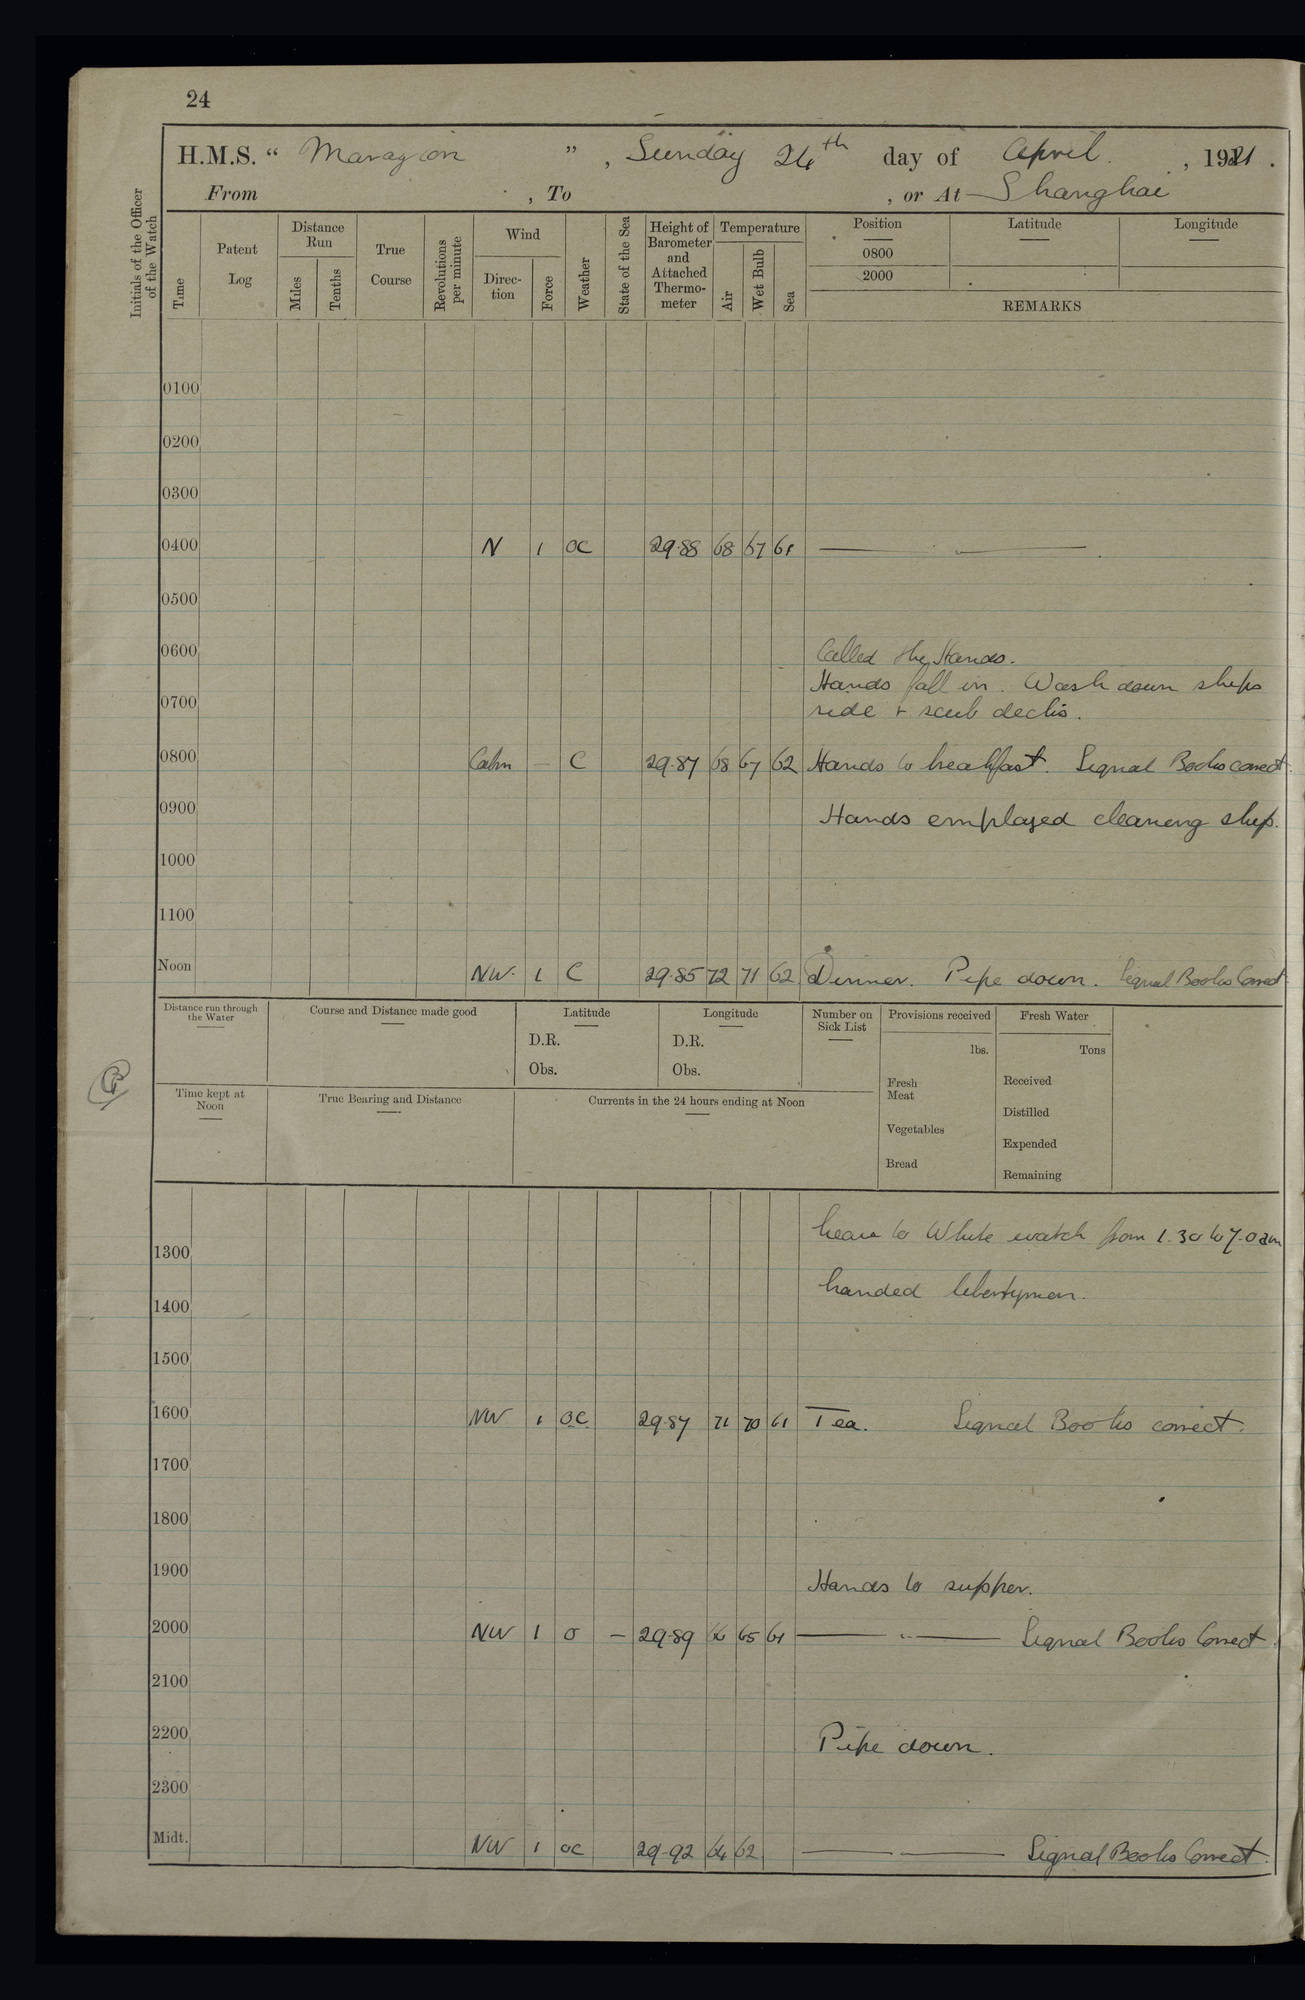 24
H.M.S. “ Marazion ” , Sunday 24th day of April. , 1921 .
From , To , or At Shanghai
Initials of the Officer of the Watch
Time
Patent Log
Distance Run
Miles
Tenths
True Course
Revolutions per minute
Wind
Direc-tion
Force
Weather
State of the Sea
Height of Barometer and Attached Thermo-meter
Temperature
Air
Wet Bulb
Sea
Position
Latitude
Longitude
0800
2000
REMARKS
0100
0200
0300
0400 N 1 oc 29.88 68 67 61
0500
0600 Called the Hands.
Hands fall in. Wash down ships
0700 side + scub decks.
0800 Calm – C 29.87 68 67 62 Hands to breakfast. Signal Books correct.
0900 Hands employed cleaning ship.
1000
1100
Noon NW. 1 C 29.85 72 71 62 Dinner. Pipe down. Signal Books Correct
Distance run through the Water
Course and Distance made good
Latitude
D.R.
Obs.
Longitude
D.R.
Obs.
Number on Sick List
Provisions received
lbs.
Fresh Meat
Vegetables
Bread
Fresh Water
Tons
Received
Distilled
Expended
Remaining
Time kept at Noon
True Bearing and Distance
Currents in the 24 hours ending at Noon
Leave to White watch from 1.30 to 7.0 am
1300
Landed libertymen.
1400
1500
1600 NW 1 oc 29.87 71 70 61 Tea. Signal Books correct.
1700
1800
1900 Hands to supper.
2000 NW 1 o – 29.89 66 65 61 Signal Books Correct.
2100
2200 Pipe down.
2300
Midt. NW 1 oc 29.92 64 62 Signal Books Correct.